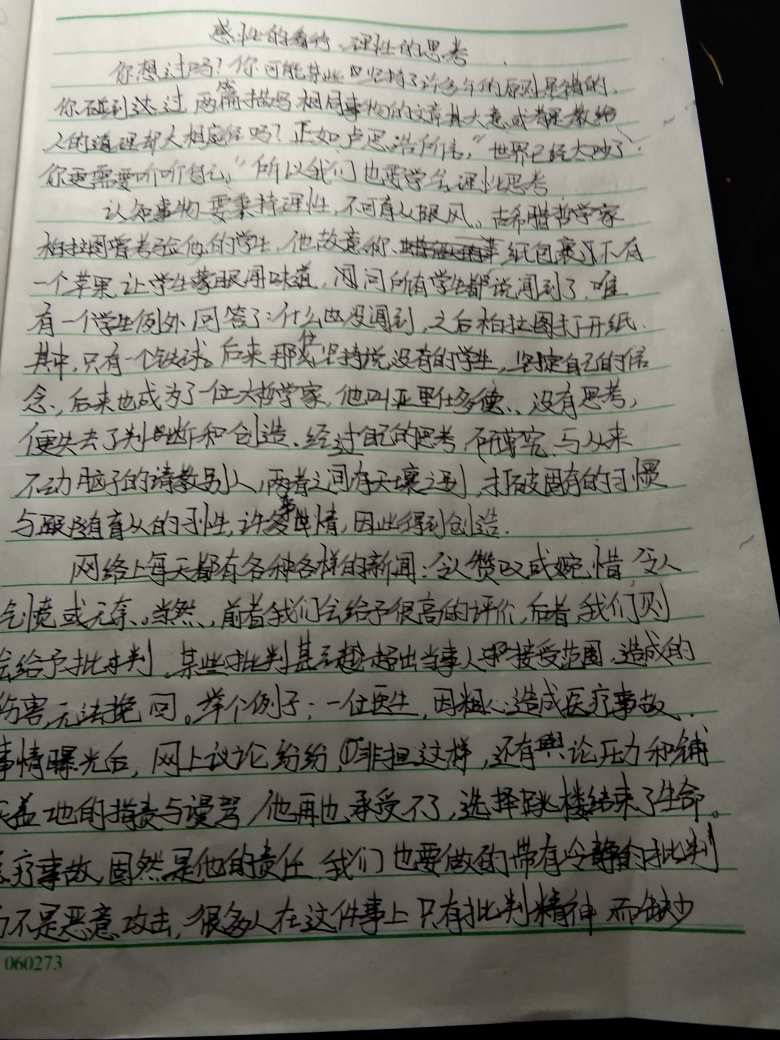 感性的看待、理性的思考
你想过吗?你可能某些坚持了许多年的原则是错的.
你碰到达过两篇描写相同事物的文章其大意或者是教给
人的道理却大相庭径吗?正如卢思浩所言,"世界已经太吵了,
你更需要听听自己。"所以我们也要学会理性思考
认知事物要秉持理性,不可盲从跟风。古希腊哲学家
柏拉图曾考验他的学生,他故意称纸包裹这下有
一个苹果让学生蒙眼闻味道,问所有学生都说闻到了,唯
有一个学生例外回答了:什么也没闻到,之后柏拉图打开纸.
其中,只有一个铁球。后来那位坚持说没有的学生,坚定自己的信
念,后来也成为了一位大哲学家,他叫亚里仕多德、没有思考,
便失去了判断和创造、经过自己的思考,研究,与从来
不动脑子的请教别人,两者之间有天壤之别,打破固有的习惯
与盲从的习性,许多事情,因此得到创造.
网络上每天都有各种各样的新闻:令人赞叹或婉惜,令人
气愤或无奈。当然,前者我们会给予很高的评价,后者,我们则
会给予批判。某些批判甚至超出当事人接受范围,造成的
伤害,无法挽回。举个例子:一位医生,因粗心造成医疗事故.
事情曝光后,网上议论纷纷,非担这样,还有舆论压力和铺
天盖地的指责与谩骂,他再也承受不了,选择跳楼结束了生命。
医疗事故,固然是他的责任,我们也要做的带有冷静的批判
而不是恶意攻击,很多人在这件事上只有批判精神而缺少
060273